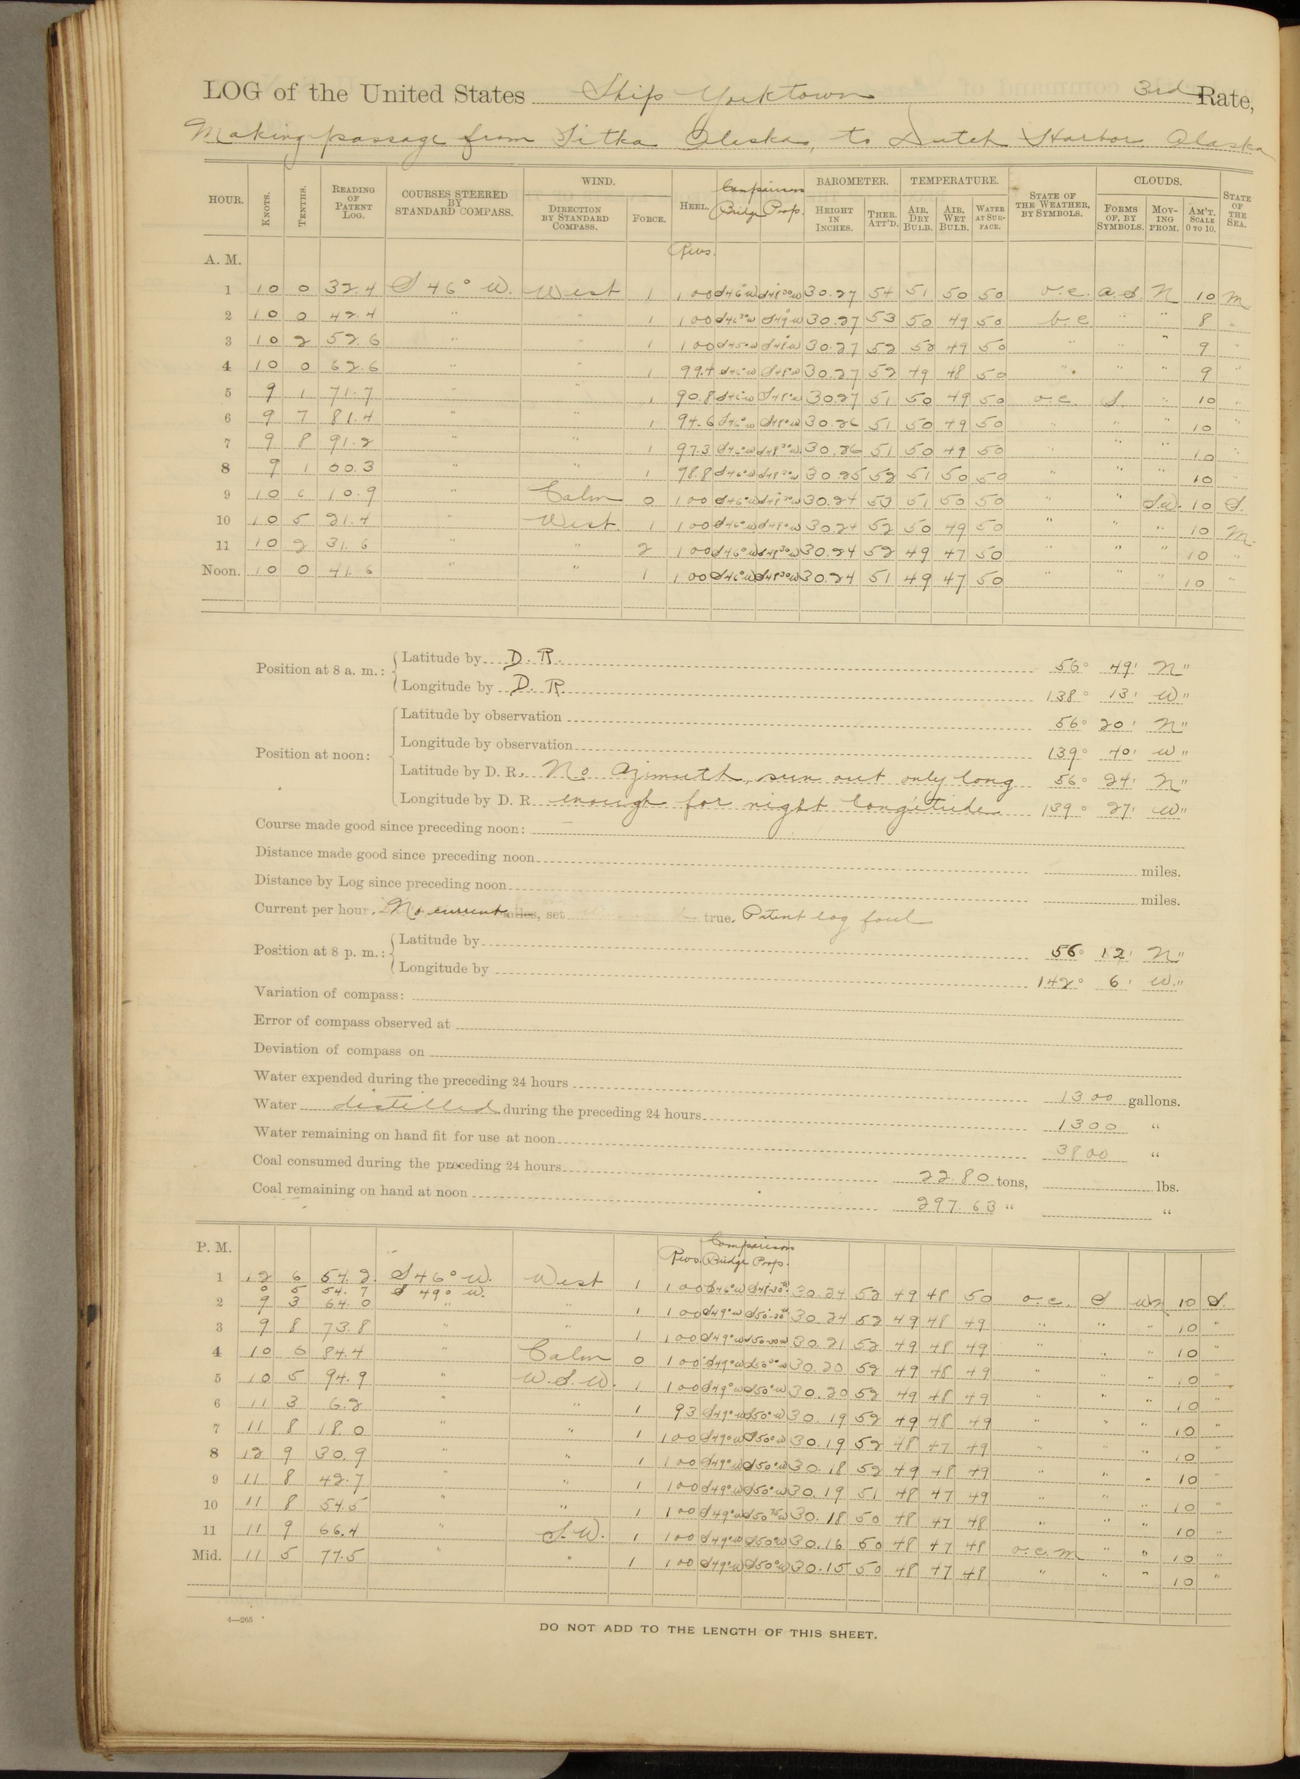 LOG of the United States Ship Yorktown 3rd Rate,
Making passage from Sitka Alaska, to Dutch Harbor Alaska
HOUR. KNOTS. TENTHS. READING OF PATENT LOG. COURSES STEERED BY STANDARD COMPASS. WIND. DIRECTION BY STANDARD COMPASS. FORCE. HEEL. Comparison Bridge Prop. BAROMETER. HEIGHT IN INCHES. THER. ATT'D. TEMPERATURE. AIR, DRY BULB. AIR, WET BULB. WATER AT SURFACE. STATE OF THE WEATHER, BY SYMBOLS. CLOUDS. FORMS OF, BY SYMBOLS. MOVING FROM. AM'T. SCALE 0 TO 10. STATE OF THE SEA.
A. M. Revs.
1 10 0 32.4 S 46° W. West 1 100 S46°W S48°30W 30.27 54 51 50 50 o.c. a.S. N 10 M
2 10 0 42.4 " " 1 100 30.27 53 50 49 50 b.c " " 8 "
3 10 2 52.6 " " 1 100 30.27 52 50 49 50 " " " 9 "
4 10 0 62.6 " " 1 99.4 30.27 52 49 48 50 " " " 9 "
5 9 1 71.7 " " 1 90.8 30.27 51 50 49 50 o.c. S. " 10 "
6 9 7 81.4 " " 1 94.6 30.26 51 50 49 50 " " " 10 "
7 9 8 91.2 " " 1 97.3 30.26 51 50 49 50 " " " 10 "
8 9 1 00.3 " " 1 30.25 52 51 50 50 " " " 10 "
9 10 6 10.9 " Calm 0 100 S46°W 30.24 53 51 50 50 " " S.W. 10 S.
10 10 5 21.4 " West 1 100 S46°W S48°W 30.24 52 50 49 50 " " " 10 M.
11 10 2 31.6 " " 2 100 S46°W S48°30W 30.24 52 49 47 50 " " " 10 "
Noon. 10 0 41.6 " " 1 100 S46°W S48°30W 30.24 51 49 47 50 " " " 10 "
Position at 8 a. m.: Latitude by D. R. 56° 49' N"
Longitude by D. R. 138° 13' W"
Position at noon: Latitude by observation 56° 20' N"
Longitude by observation 139° 40' W"
Latitude by D. R. No Azimuth, sun out only long 56° 24' N"
Longitude by D. R. enough for night longitude. 139° 27' W"
Course made good since preceding noon:
Distance made good since preceding noon miles.
Distance by Log since preceding noon miles.
Current per hour, No current miles, set true. Patent log foul
Position at 8 p. m.: Latitude by 56° 12' N"
Longitude by 142° 6' W."
Variation of compass:
Error of compass observed at
Deviation of compass on
Water expended during the preceding 24 hours 1300 gallons.
Water distilled during the preceding 24 hours 1300 "
Water remaining on hand fit for use at noon 3800 "
Coal consumed during the preceding 24 hours 22.80 tons, lbs.
Coal remaining on hand at noon 297.63 " "
P. M. Revs. Comparison Bridge Prop.
1 12 6 54.2 S 46° W. West 1 100 S46°W 30.24 52 49 48 50 o.c. S WN 10 S.
0 5 54.7 S 49° W.
2 9 3 64.0 " " 1 100 S49°W 30.24 52 49 48 49 " " " 10 "
3 9 8 73.8 " " 1 100 S49°W 30.21 52 49 48 49 " " " 10 "
4 10 6 84.4 " Calm 0 100 S49°W 30.20 52 49 48 49 " " " 10 "
5 10 5 94.9 " W.S.W. 1 100 S49°W S50°W 30.20 52 49 48 49 " " " 10 "
6 11 3 6.2 " " 1 93 S49°W S50°W 30.19 52 49 48 49 " " " 10 "
7 11 8 18.0 " " 1 100 S49°W S50°W 30.19 52 48 47 49 " " " 10 "
8 12 9 30.9 " " 1 100 S49°W S50°W 30.18 52 49 48 49 " " " 10 "
9 11 8 42.7 " " 1 100 S49°W S50°W 30.19 51 48 47 49 " " " 10 "
10 11 8 54.5 " " 1 100 S49°W 30.18 50 48 47 48 " " " 10 "
11 11 9 66.4 " S.W. 1 100 S49°W S50°W 30.16 50 48 47 48 o.c.m " " 10 "
Mid. 11 5 77.5 " " 1 100 S49°W S50°W 30.15 50 48 47 48 " " " 10 "
4—265
DO NOT ADD TO THE LENGTH OF THIS SHEET.